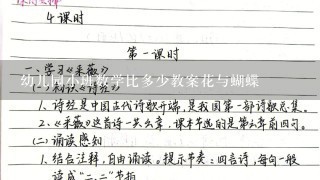 4课时
第一课时
一、学习《采薇》
幼儿园小班数学比多少教案花与蝴蝶
(一)知识《诗经》
1、诗经是中国古代诗歌开端,是我国第一部诗歌总集。
2、《采薇》这首诗一共六章,课本节选的是第六章前四句。
(二)诵读感知
1、结合注释,自由诵读。提示节奏:四言诗,每句一般
读成"二、二"节拍